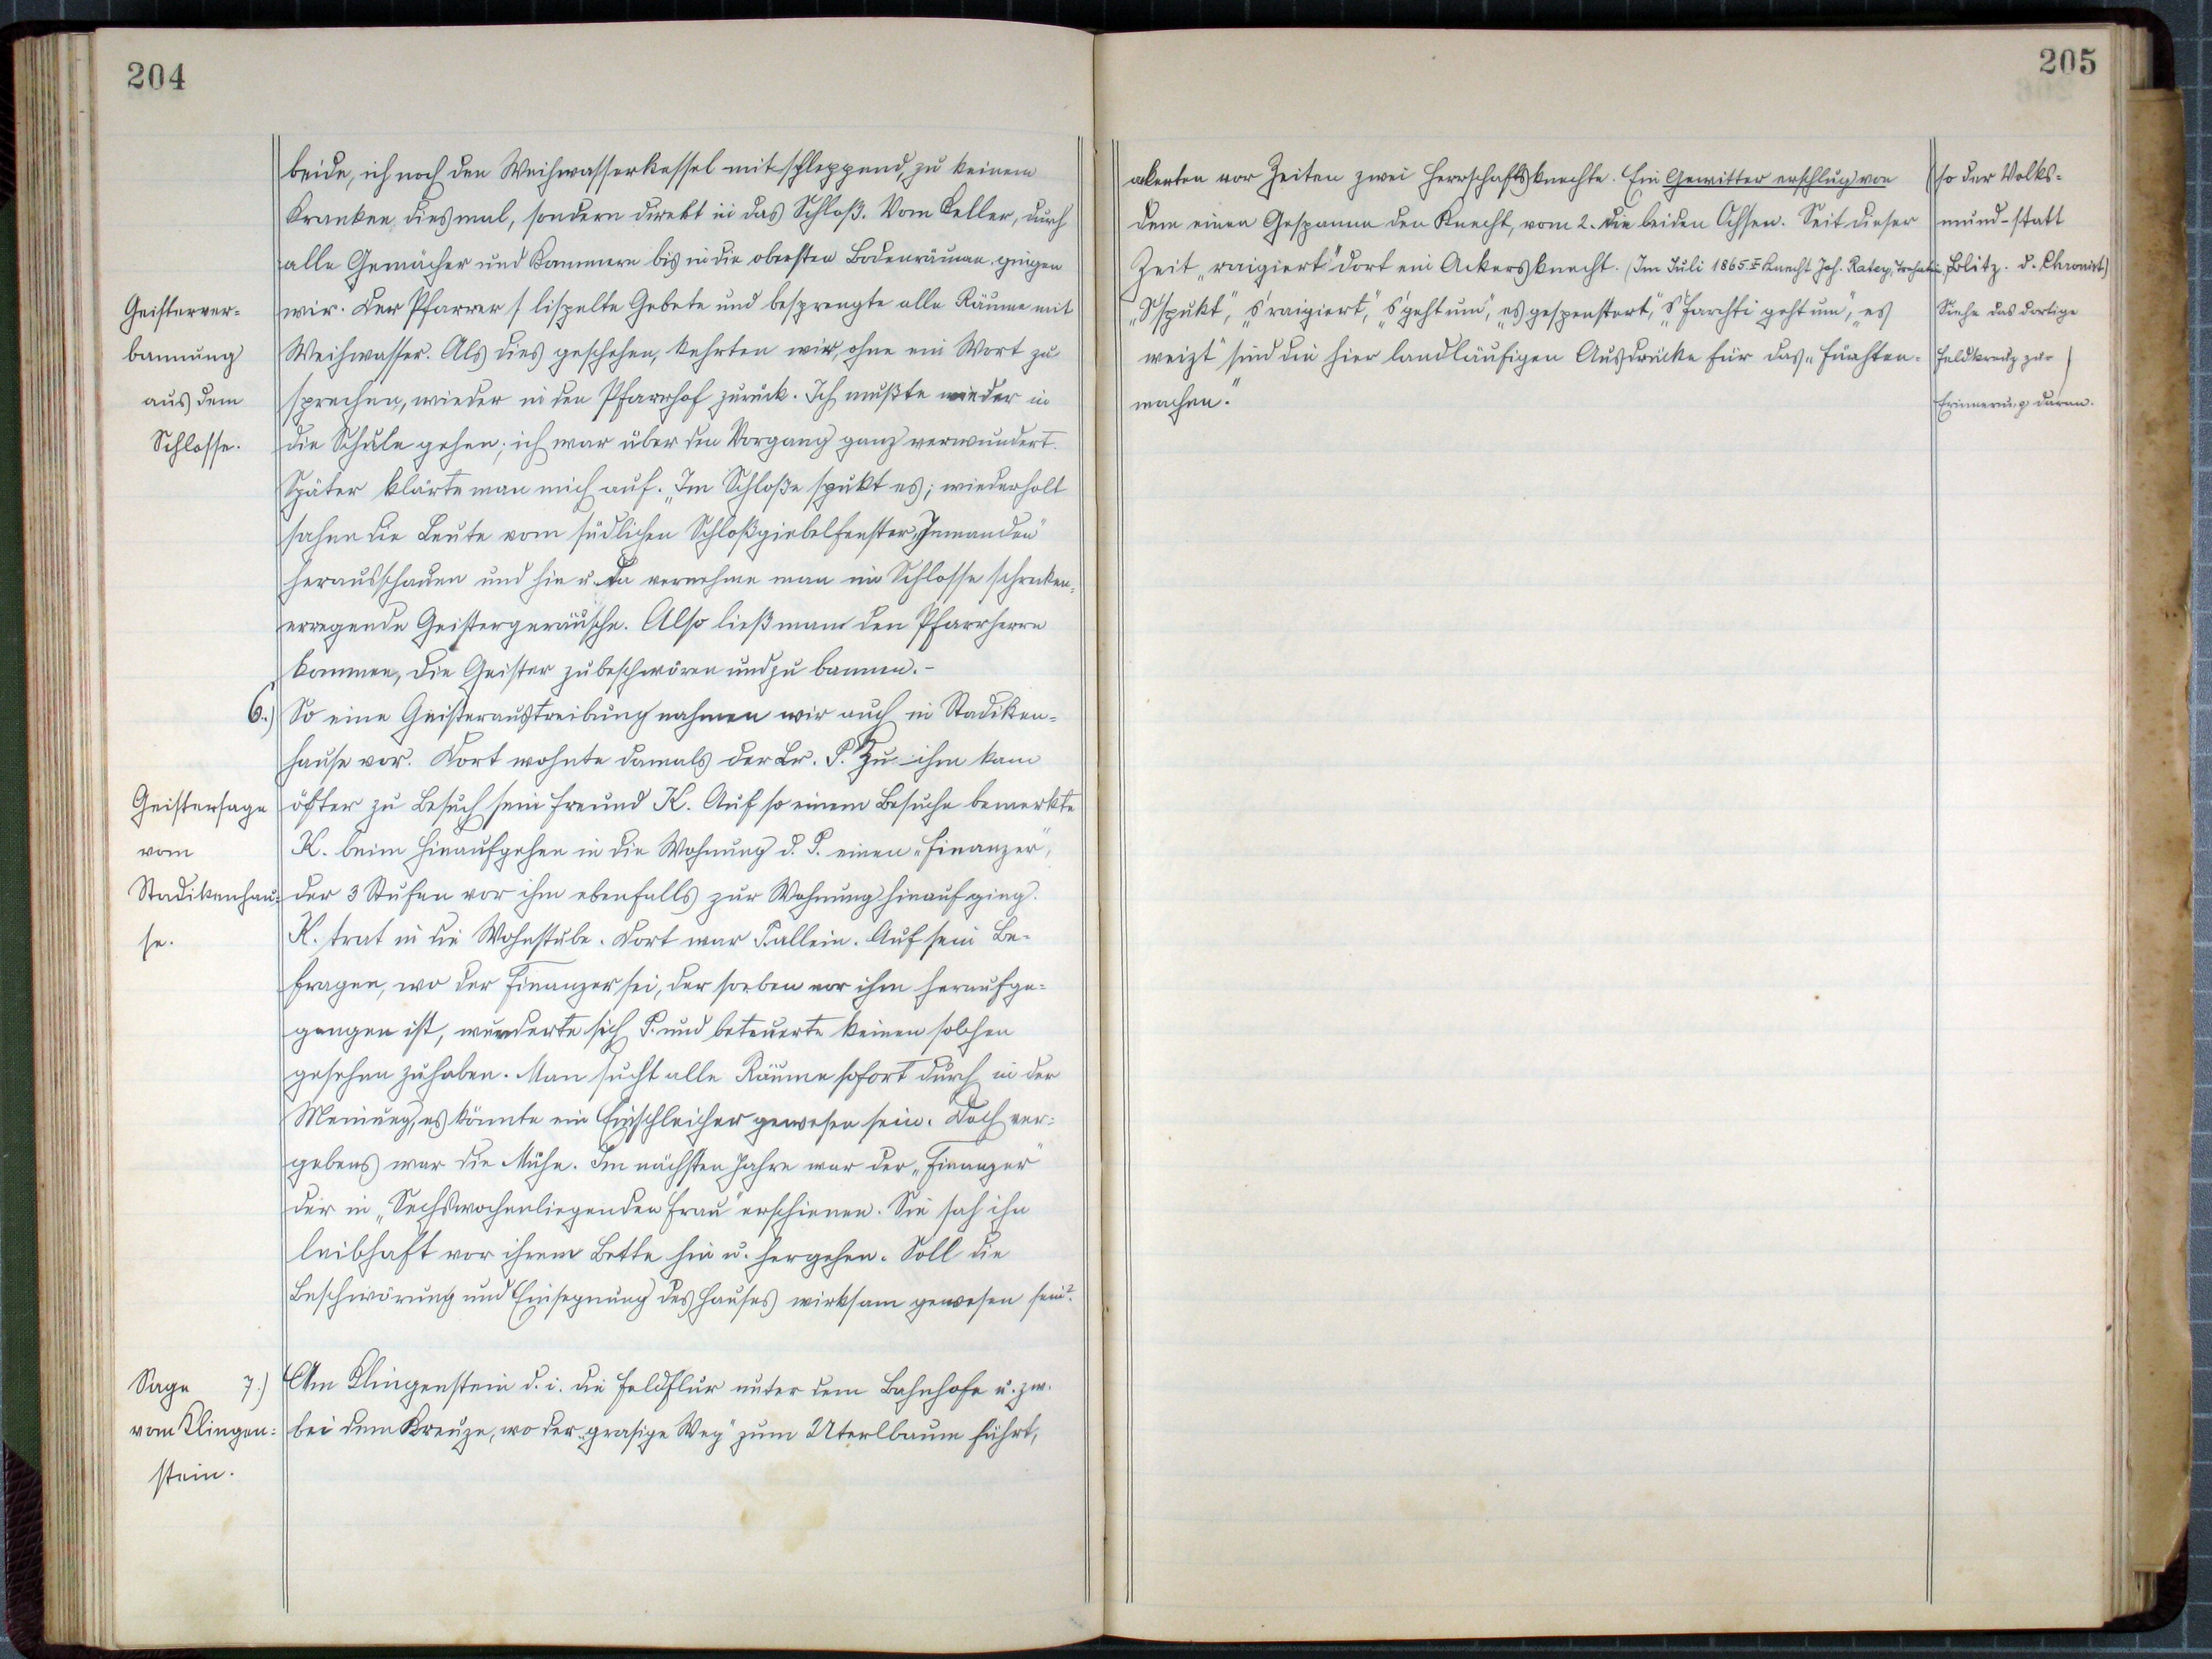 204
beide, ich noch den Weihwasserkessel mitschleppend, zu keinem
Kranken diesmal, sondern direkt in das Schloß. Vom Keller, durch
alle Gemächer und Kammern bis in die obersten Bodenräume gingen
Geisterver-
bannung
aus dem
Schlosse.
wir. Der Pfarrer lispelte Gebete und besprengte alle Räume mit
Weihwasser. Als dies geschehen, kehrten wir, ohne ein Wort zu
sprechen, wieder in den Pfarrhof zurück. Ich mußte wieder in
die Schule gehen; ich war über den Vorgang ganz verwundert.
Später klärte man mich auf. „Im Schloße spukt es; wiederholt
sahen die Leute vom südlichen Schloßgiebelfenster „Jemanden"
herausschauen und hie u. da vernehme man im Schlosse schrecken-
erregende Geistergeräusche. Also ließ man den Pfarrherrn
kommen, die Geister zu beschwören und zu bannen.-
6.) So eine Geisteraustreibung nahmen wir auch in Stadiken-
hause vor. Dort wohnte damals der Br. P. Zu ihm kam
Geistersage
vom
Stadikenhau-
se.
öfter zu Besuch sein Freund K. Auf so einem Besuche bemerkte
K. beim Hinaufgehen in die Wohnung d. P. einen „Finanzer",
der 3 Stufen vor ihm ebenfalls zur Wohnung hinaufging.
K. trat in die Wohnstube. Dort war P. allein. Auf sein Be-
fragen, wo der Finanzer sei, der soeben vor ihm heraufge-
gangen ist, wunderte sich P. und beteuerte keinen solchen
gesehen zu haben. Man sucht alle Räume sofort durch in der
Meinung, es könnte ein Einschleicher gewesen sein. Doch ver-
gebens war die Mühe. Im nächsten Jahre war der „Finanzer"
der in „Sechswochenliegenden Frau" erschienen. Sie sah ihn
leibhaft vor ihrem Bette hin u. hergehen. Soll die
Beschwörung und Einsegnung des Hauses wirksam gewesen sein?
Sage
vom Klingen-
stein.
7.) Am Klingenstein d. i. die Feldflur unter dem Bahnhofe u. zw.
bei dem Kreuze, wo der „grasige Weg" zum Uterlbaum führt,
205
akerten vor Zeiten zwei Herrschaftsknechte. Ein Gewitter erschlug von
dem einen Gespanne den Knecht, vom 2. die beiden Ochsen. Seit dieser
Zeit „raigiert" dort ein Ackersknecht. (Im Juli 1865 Knecht Joh.
„S'spukt", „s'raigiert", „s'geht um", „es gespenstert", „s'Farchti geht um", „es
weizt" sind die hier landläufigen Ausdrücke für das „Fürchten-
machen."
(so der Volks-
mund-statt
Blitz. d. Chronist)
Siehe das dortige
Feldkreuz zur
Erinnerung daran.